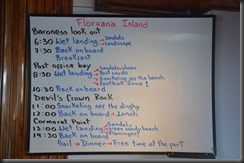 Floreana Island
Baroness look out
6:30 Wet landing → Sandals
→ Landscape
7:30 Back on board
Breakfast
Post office bay
8:30 Wet landing → Sandals/shoes
→ Post cards
→ Snorkeling off the beach
→ Football Game!
10:30 Back on board
Devil's Crown Rock
11:00 Snorkeling off the dinghy
12:00 Back on board → Lunch
Cormorant Point
14:30 Wet landing → Sandals
→ Green sandy beach
→ Flamingos
19:00 Back on board
Sail → Dinner → Free time at the port